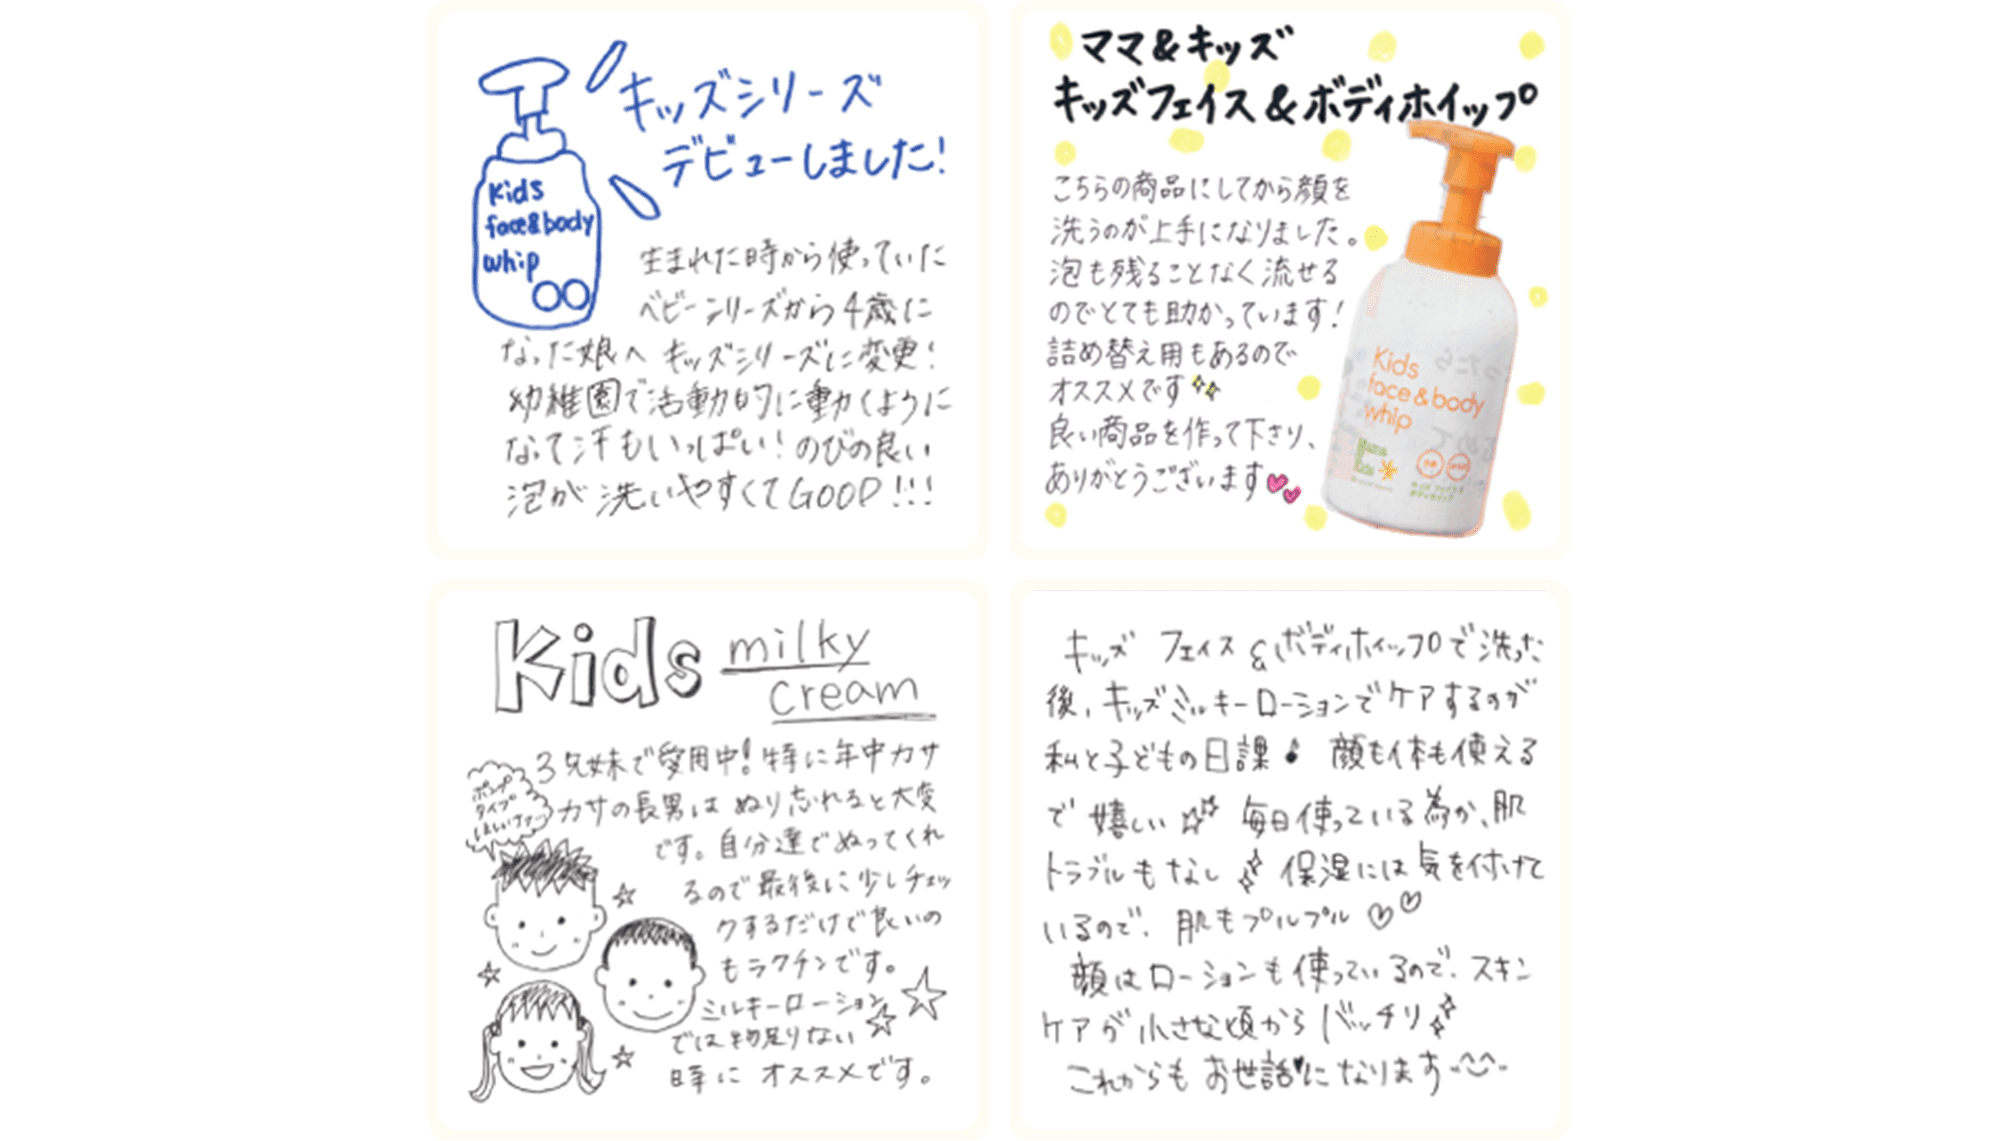 キッズシリーズ
デビューしました!
Kids
face&body
whip
生まれた時から使っていた
ベビーシリーズから4歳に
なった娘へ キッズシリーズに変更!
幼稚園で活動的に動くように
なって汗もいっぱい!のびの良い
泡が洗いやすくてGOOD!!!
ママ&キッズ
キッズフェイス&ボディホイップ
こちらの商品にしてから顔を
洗うのが上手になりました。
泡も残ることなく流せる
のでとても助かっています!
詰め替え用もあるので
オススメです
良い商品を作って下さり、
ありがとうございます
Kids
face & body
whip
Kids milky
cream
3兄妹で愛用中!特に年中カサ
カサの長男はぬり忘れると大変
です。自分達でぬってくれ
るので最後に少しチェッ
クするだけで良いの
もラクチンです。
ミルキーローション
では物足りない
時に オススメです。
ポンプ
タイプ
キッズ フェイス&ボディホイップで洗った
後、キッズミルキーローションでケアするのが
私と子どもの日課♪ 顔も体も使える
で嬉しい 毎日使っている為か、肌
トラブルもなし 保湿には気を付けて
いるので、肌もプルプル♡♡
顔はローションも使っているので、スキン
ケアが小さな頃からバッチリ
これからもお世話になります^^